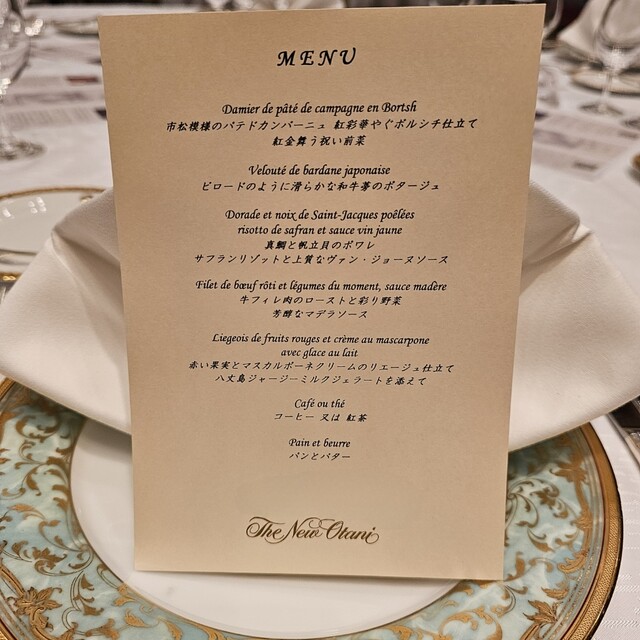 MENU
Damier de pâté de campagne en Bortsh
市松模様のパテドカンパーニュ 紅彩華やぐボルシチ仕立て
紅金舞う祝い前菜
Velouté de bardane japonaise
ビロードのように滑らかな和牛蒡のポタージュ
Dorade et noix de Saint-Jacques poêlées
risotto de safran et sauce vin jaune
真鯛と帆立貝のポワレ
サフランリゾットと上質なヴァン・ジョーヌソース
Filet de bœuf rôti et légumes du moment, sauce madère
牛フィレ肉のローストと彩り野菜
芳醇なマデラソース
Liegeois de fruits rouges et crème au mascarpone
avec glace au lait
赤い果実とマスカルポーネクリームのリエージュ仕立て
八丈島ジャージーミルクジェラートを添えて
Café ou thé
コーヒー 又は 紅茶
Pain et beurre
パンとバター
The New Otani